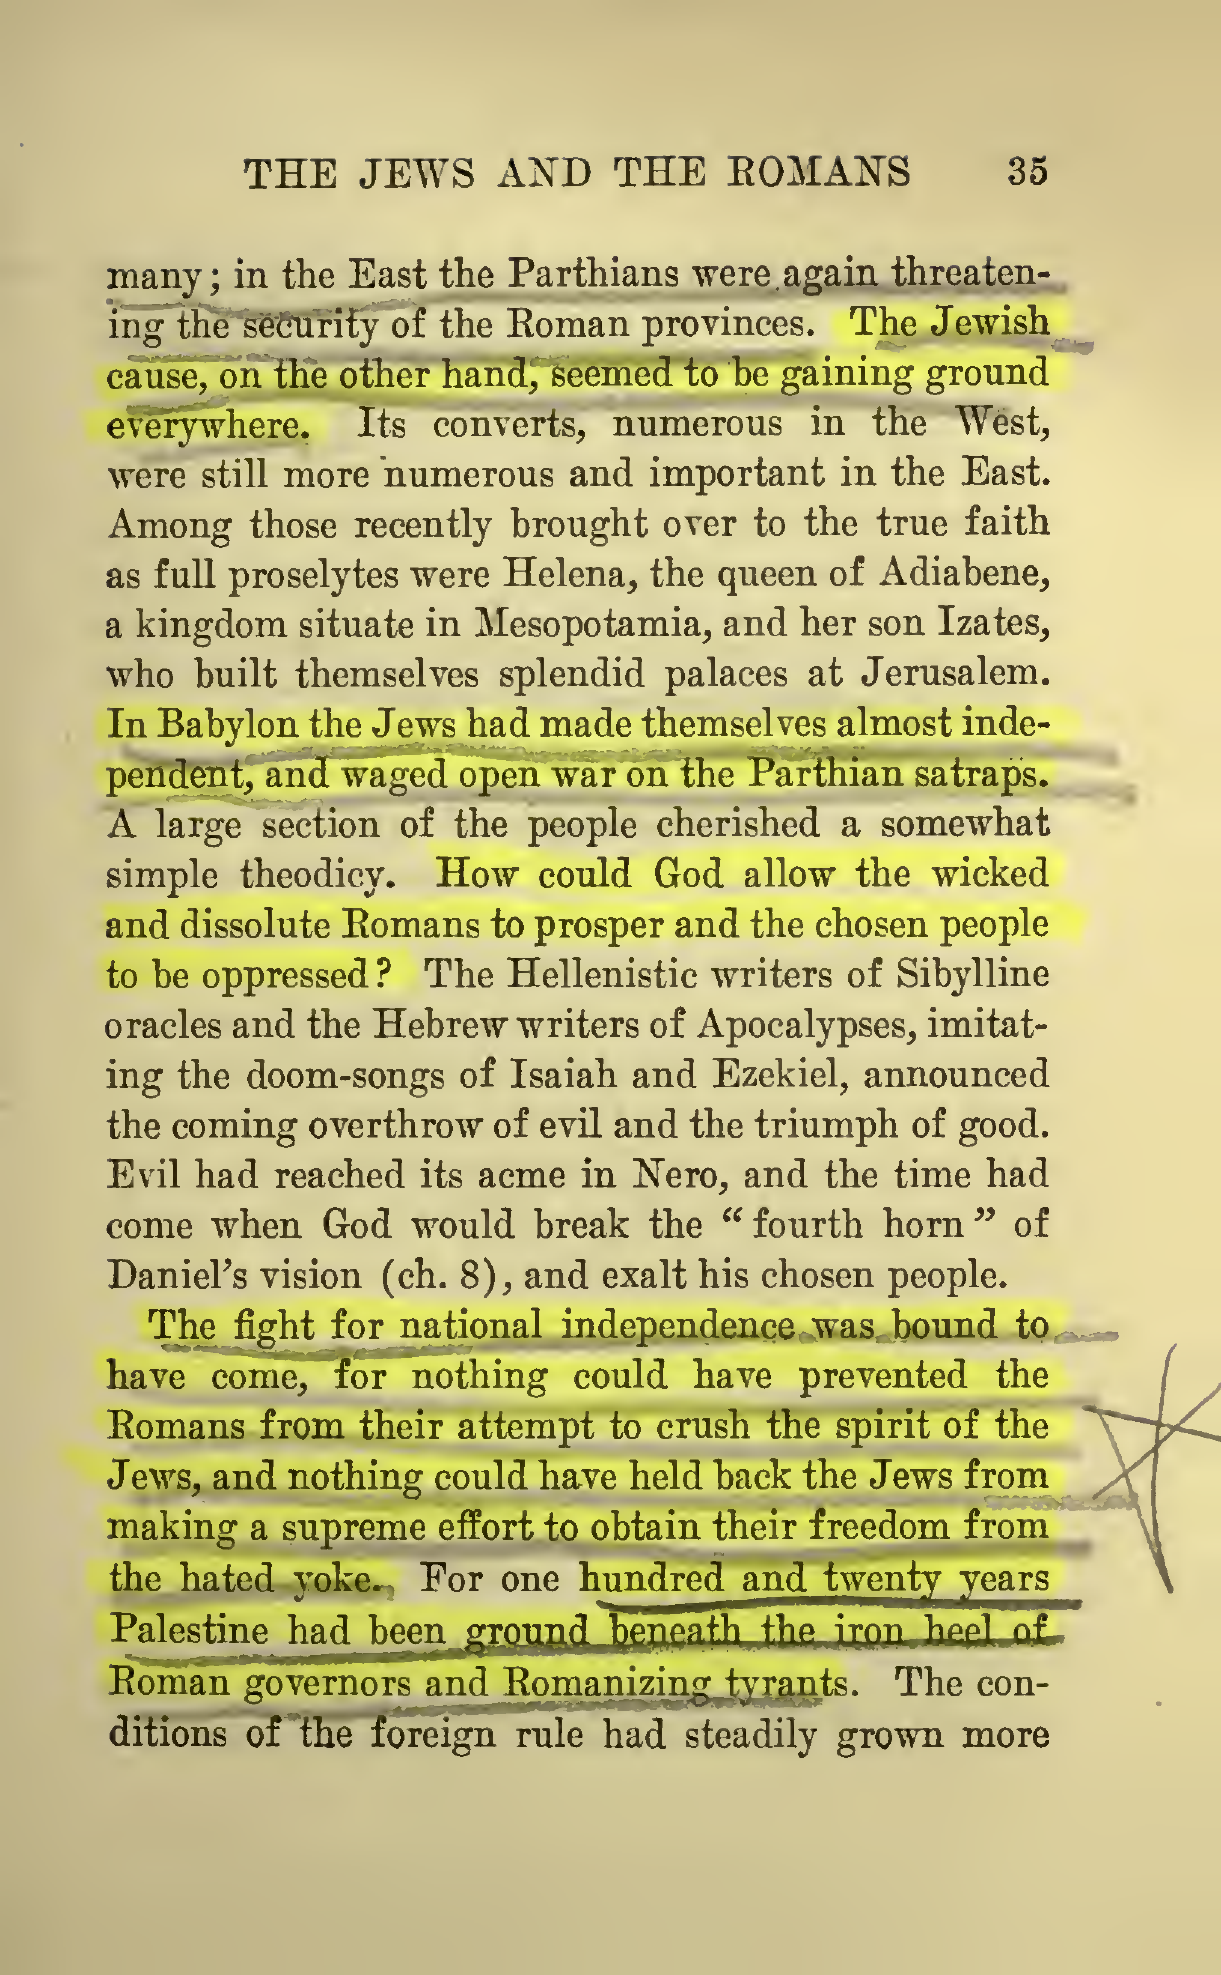 THE JEWS AND THE ROMANS 35
many; in the East the Parthians were again threaten-
ing the security of the Roman provinces. The Jewish
cause, on the other hand, seemed to be gaining ground
everywhere. Its converts, numerous in the West,
were still more numerous and important in the East.
Among those recently brought over to the true faith
as full proselytes were Helena, the queen of Adiabene,
a kingdom situate in Mesopotamia, and her son Izates,
who built themselves splendid palaces at Jerusalem.
In Babylon the Jews had made themselves almost inde-
pendent, and waged open war on the Parthian satraps.
A large section of the people cherished a somewhat
simple theodicy. How could God allow the wicked
and dissolute Romans to prosper and the chosen people
to be oppressed? The Hellenistic writers of Sibylline
oracles and the Hebrew writers of Apocalypses, imitat-
ing the doom-songs of Isaiah and Ezekiel, announced
the coming overthrow of evil and the triumph of good.
Evil had reached its acme in Nero, and the time had
come when God would break the “fourth horn” of
Daniel's vision (ch. 8), and exalt his chosen people.
The fight for national independence was bound to
have come, for nothing could have prevented the
Romans from their attempt to crush the spirit of the
Jews, and nothing could have held back the Jews from
making a supreme effort to obtain their freedom from
the hated yoke. For one hundred and twenty years
Palestine had been ground beneath the iron heel of
Roman governors and Romanizing tyrants. The con-
ditions of the foreign rule had steadily grown more